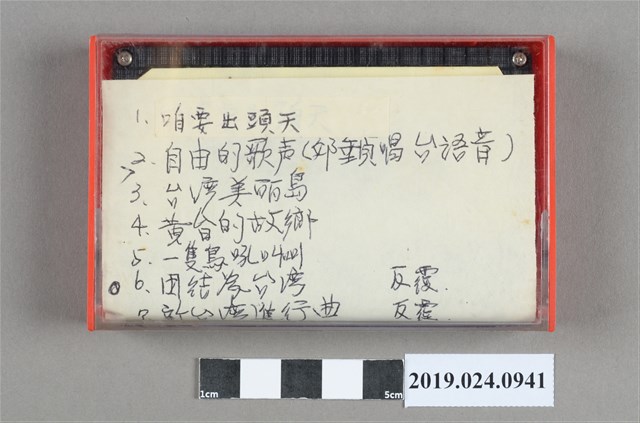 1. 咱要出頭天
2. 自由的歌声(邱垂貞唱台語音)
3. 台湾美丽島
4. 黄昏的故鄉
5. 一隻鳥吼叫叫
6. 团結為台湾 反覆.
7 新台湾進行曲 反覆.
1cm 5cm
2019.024.0941